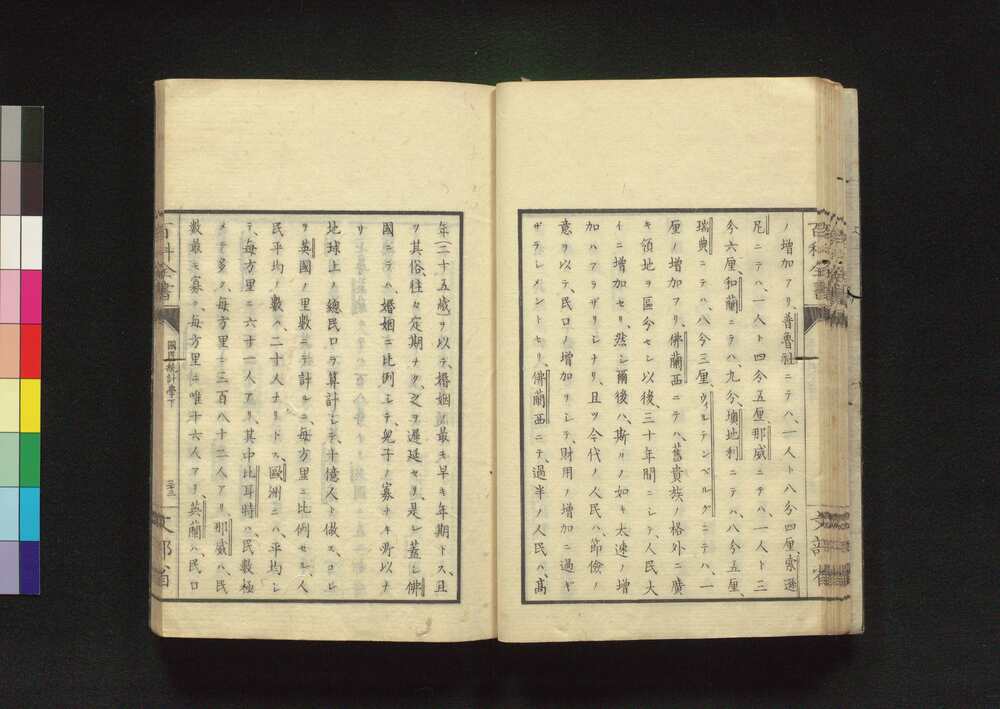 ノ增加アリ、普魯社ニテハ、一人ト八分四厘、索遜
尼ニテハ、一人ト四分五厘、那威ニテハ、一人ト三
分六厘、和蘭ニテハ、九分、墺地利ニテハ、八分五厘、
瑞典ニテハ、八分三厘、ヴルテンベルグニテハ、一
厘ノ增加アリ、佛蘭西ニテハ、舊貴族ノ格外ニ廣
キ領地ヲ區分セシ以後、三十年間ニシテ、人民大
イニ增加セリ、然シ爾後ハ、斯クノ如キ太速ノ增
加ハアラザリシナリ、且ツ今代ノ人民ハ、節儉ノ
意ヲ以テ、民口ノ增加ヲシテ、財用ノ增加ニ過ギ
ザラシメントセリ、佛蘭西ニテ、過半ノ人民ハ、高
百科全書
文部省
年(二十五歲)ヲ以テ、婚姻ノ最モ早キ年期トス、且
ツ其俗、往々定期ナク、之ヲ遲延セリ、是レ蓋シ佛
國ニテハ、婚姻ニ比例シテ、兒子ノ寡ナキ所以ナ
リ
地球上ノ總民口ヲ算計シテ、十億人ト做ス、コレ
ヲ英國ノ里數ニテ計ルニ、每方里ニ比例セル、人
民平均ノ數ハ、二十人ナリトス、歐洲ニハ、平均シ
テ、每方里ニ六十一人アリ、其中比耳時ハ、民數極
メテ多ク、每方里ニ三百八十二人アリ、那威ハ、民
數最モ寡ク、每方里ニ唯十六人アリ、英蘭ハ、民口
百科全書
國民統計學下
二十三
文部省